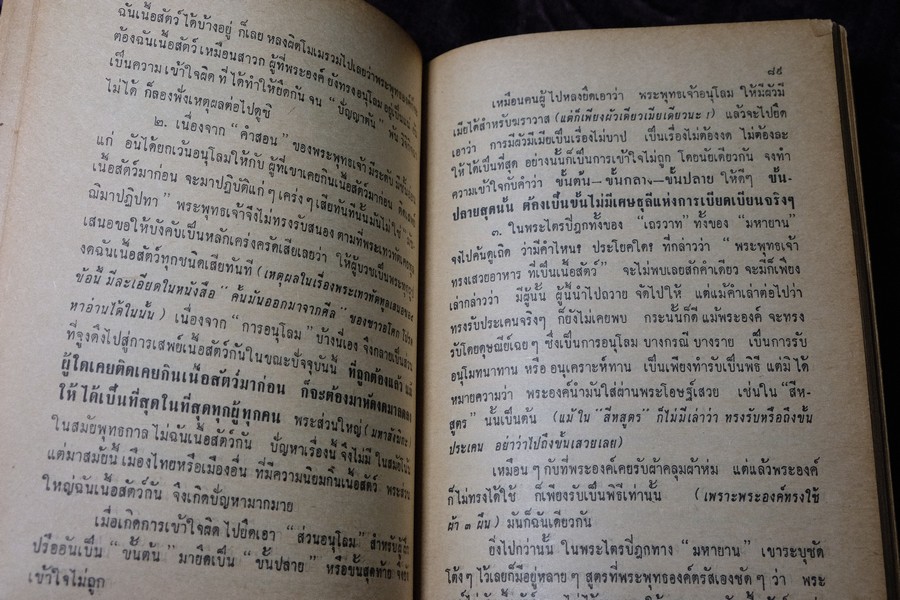 ฉันเนื้อสัตว์ ได้บ้างอยู่ ก็เลย หลงผิดโมเมรวมไปเลยว่าพระพุทธองค์
ต้องฉันเนื้อสัตว์ เหมือนสาวก ผู้ที่พระองค์ ยังทรงอนุโลม อยู่
เป็นความ เข้าใจผิด ที่ ได้ทำให้ยึดกัน จน “ปัญญาตัน”
ไม่ได้ ก็ลองฟังเหตุผลต่อไปดูซิ
๒. เนื่องจาก “คำสอน” ของพระพุทธเจ้า มีระดับ
แก่ อันได้ยกเว้นอนุโลมให้กับ ผู้ที่เขาเคยกินเนื้อสัตว์มาก่อน
เนื้อสัตว์มาก่อน จะมาปฏิบัติแก่ๆ เคร่งๆ เสียทันทีนั้นมันไม่ใช่
ฌิมาปฏิปทา” พระพุทธเจ้าจึงไม่ทรงรับสนอง ตามที่พระเทวทัต
เสนอขอให้บังคับเป็นหลักเคร่งครัดเสียเลยว่า ให้ผู้บวชเป็นพระทุกรูป
งดฉันเนื้อสัตว์ทุกชนิดเสียทันที (เหตุผลในเรื่องพระเทวทัตทูลเสนอ
ข้อนี้ มีละเอียดในหนังสือ “คั้นมันออกมาจากศีล” ของชาวอโศก
หาอ่านได้ในนั้น) เนื่องจาก “การอนุโลม” บ้างนี่เอง จึงกลายเป็น
ที่จูงดึงไปสู่การเสพย์เนื้อสัตว์กันในขณะปัจจุบันนี้ ที่ถูกต้องแล้ว
ผู้ใดเคยติดเคยกินเนื้อสัตว์มาก่อน ก็จะต้องมาหัดงดมาลดลง
ให้ ได้เป็นที่สุดในที่สุดทุกผู้ทุกคน พระส่วนใหญ่ (มหาสังฆิกะ)
ในสมัยพุทธกาล ไม่ฉันเนื้อสัตว์กัน ปัญหาเรื่องนี้ จึงไม่มี ในสมัยโน้น
แต่มาสมัยนี้ เมืองไทยหรือเมืองอื่น ที่มีความนิยมกินเนื้อสัตว์ พระส่วน
ใหญ่ฉันเนื้อสัตว์กัน จึงเกิดปัญหามากมาย
เมื่อเกิดการเข้าใจผิด ไปยึดเอา “ส่วนอนุโลม” สำหรับผู้
ปรืออันเป็น “ขั้นต้น” มายึดเป็น “ขั้นปลาย” หรือขั้นสุดท้าย
เข้าใจไม่ถูก
๘๙
เหมือนคนผู้ ไปหลงยึดเอาว่า พระพุทธเจ้าอนุโลม ให้มีผัวมี
เมียได้สำหรับฆราวาส (แต่ก็เพียงผัวเดียวเมียเดียวนะ !) แล้วจะไปยึด
เอาว่า การมีผัวมีเมียเป็นเรื่องไม่บาป เป็นเรื่องไม่ต้องงด ไม่ต้องละ
ให้ได้เป็นที่สุด อย่างนั้นก็เป็นการเข้าใจไม่ถูก โดยนัยเดียวกัน จงทำ
ความเข้าใจกับคำว่า ขั้นต้น–ขั้นกลาง–ขั้นปลาย ให้ดีๆ ขั้น-
ปลายสุดนั้น ต้องเป็นขั้นไม่มีเศษธุลีแห่งการเบียดเบียนจริงๆ
๓. ในพระไตรปิฎกทั้งของ “เถรวาท” ทั้งของ “มหายาน”
จงไปค้นดูเถิด ว่ามีคำไหน? ประโยคใด? ที่กล่าวว่า “พระพุทธเจ้า
ทรงเสวยอาหาร ที่เป็นเนื้อสัตว์” จะไม่พบเลยสักคำเดียว จะมีก็เพียง
เล่ากล่าวว่า มีผู้นั้น ผู้นี้นำไปถวาย จัดไปให้ แต่แม้คำเล่าต่อไปว่า
ทรงรับประเคนจริงๆ ก็ยังไม่เคยพบ กระนั้นก็ดี แม้พระองค์ จะทรง
รับโดยดุษณีย์เฉยๆ ซึ่งเป็นการอนุโลม บางกรณี บางราย เป็นการรับ
อนุโมทนาทาน หรือ อนุเคราะห์ทาน เป็นเพียงทำรับเป็นพิธี แต่มิได้
หมายความว่า พระองค์นำมันใส่ผ่านพระโอษฐ์เสวย เช่นใน “สีห-
สูตร” นั้นเป็นต้น (แม้ ใน “สีหสูตร” ก็ไม่มีเล่าว่า ทรงรับหรือถึงขั้น
ประเคน อย่าว่าไปถึงขั้นเสวยเลย)
เหมือนๆ กับที่พระองค์เคยรับผ้าคลุมผ้าห่ม แต่แล้วพระองค์
ก็ไม่ทรงได้ใช้ ก็เพียงรับเป็นพิธีเท่านั้น (เพราะพระองค์ทรงใช้
ผ้า ๓ ผืน) มันก็ฉันเดียวกัน
ยิ่งไปกว่านั้น ในพระไตรปิฎกทาง “มหายาน” เขาระบุชัด
โต้งๆ ไว้เลยก็มีอยู่หลายๆ สูตรที่พระพุทธองค์ตรัสเองชัดๆ ว่า พระ